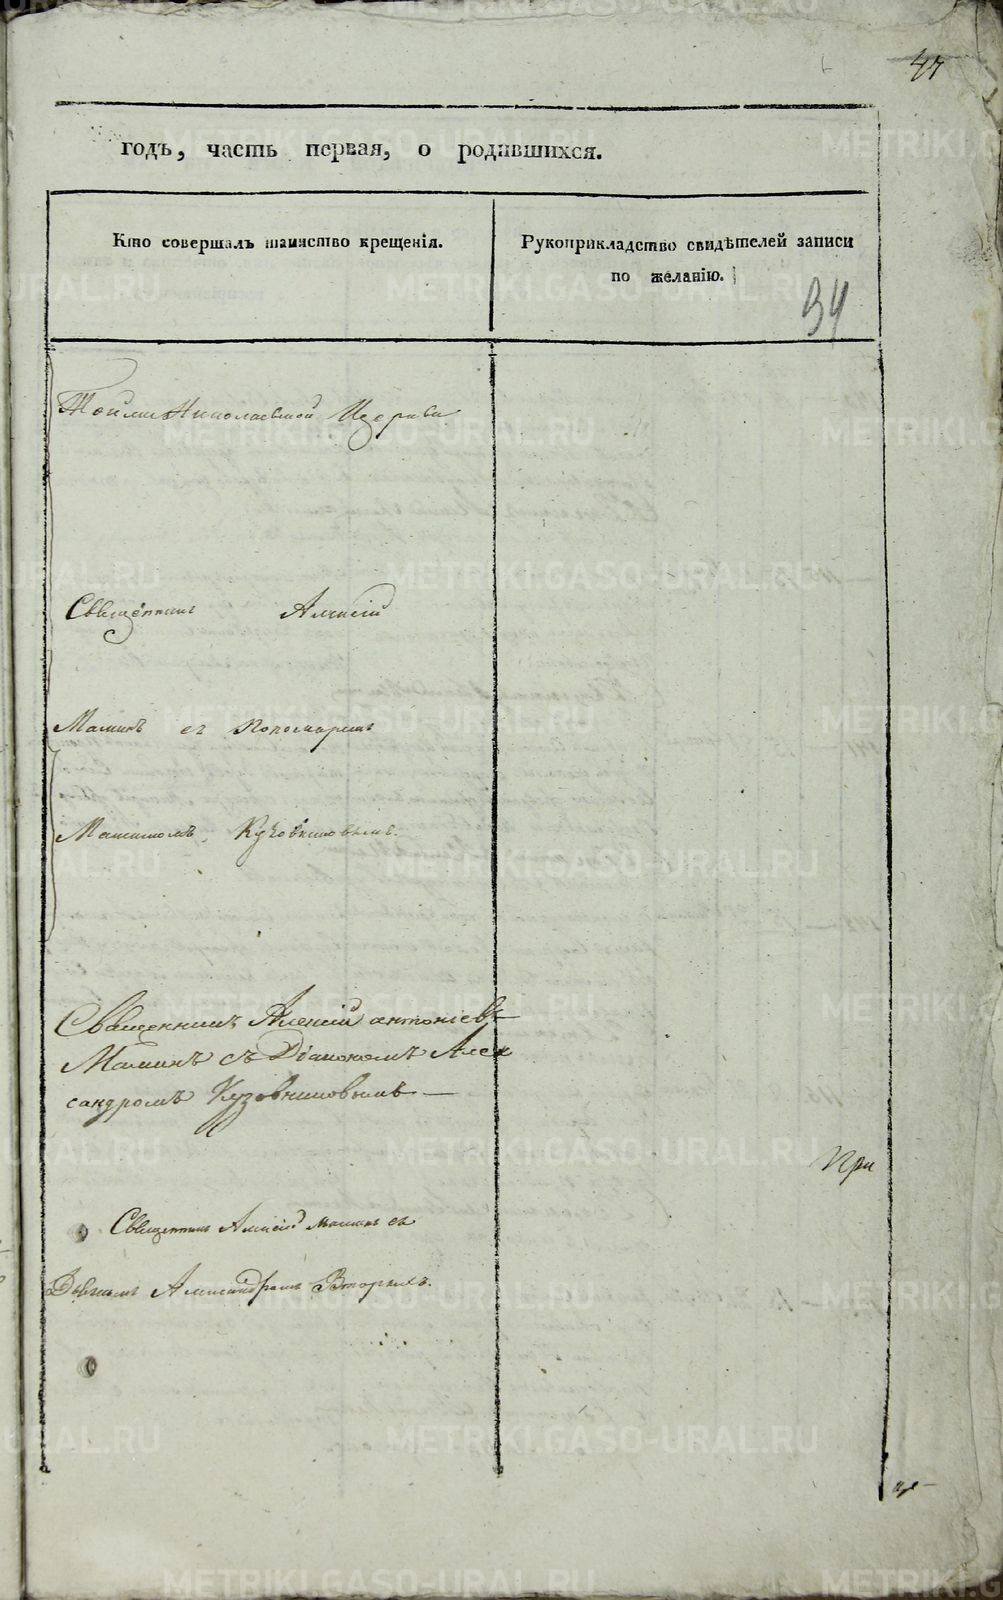 47
годъ, часть первая, о родившихся.
Кто совершалъ таинство крещенія.
Рукоприкладство свидѣтелей записи
по желанію.
34
Тойже Николаевской Церкви
Священникъ Алексій
Маминъ съ Пономаремъ
Максимомъ Кузовниковымъ.
Священникъ Алексій антоніевъ
Маминъ съ Діакономъ Алек
сандромъ Кузовниковымъ
При
Священникъ Алексій Маминъ съ
Александромъ Вторыхъ.
METRIKI.GASO-URAL.RU